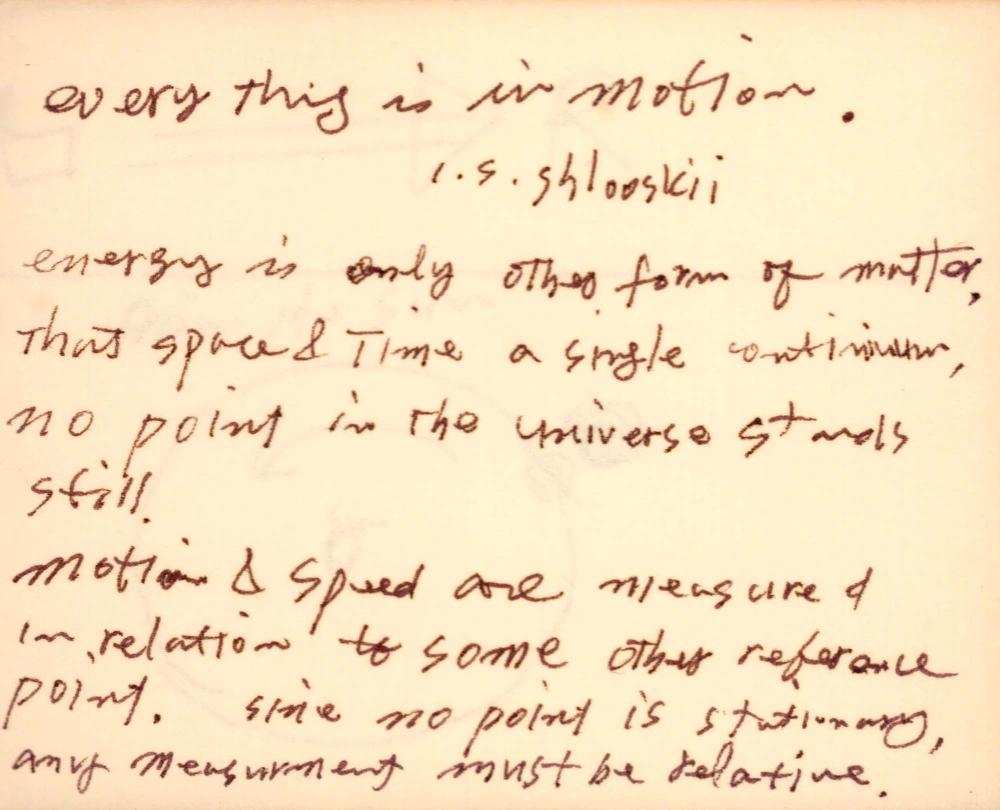 every thing is in motion.
i.s. shlooskii
energy is only other form of matter,
that space & Time a single continuum,
no point in the universe stands
still.
motion & speed are measured
in relation to some other reference
point. sine no point is stationary,
any measurment must be relative.